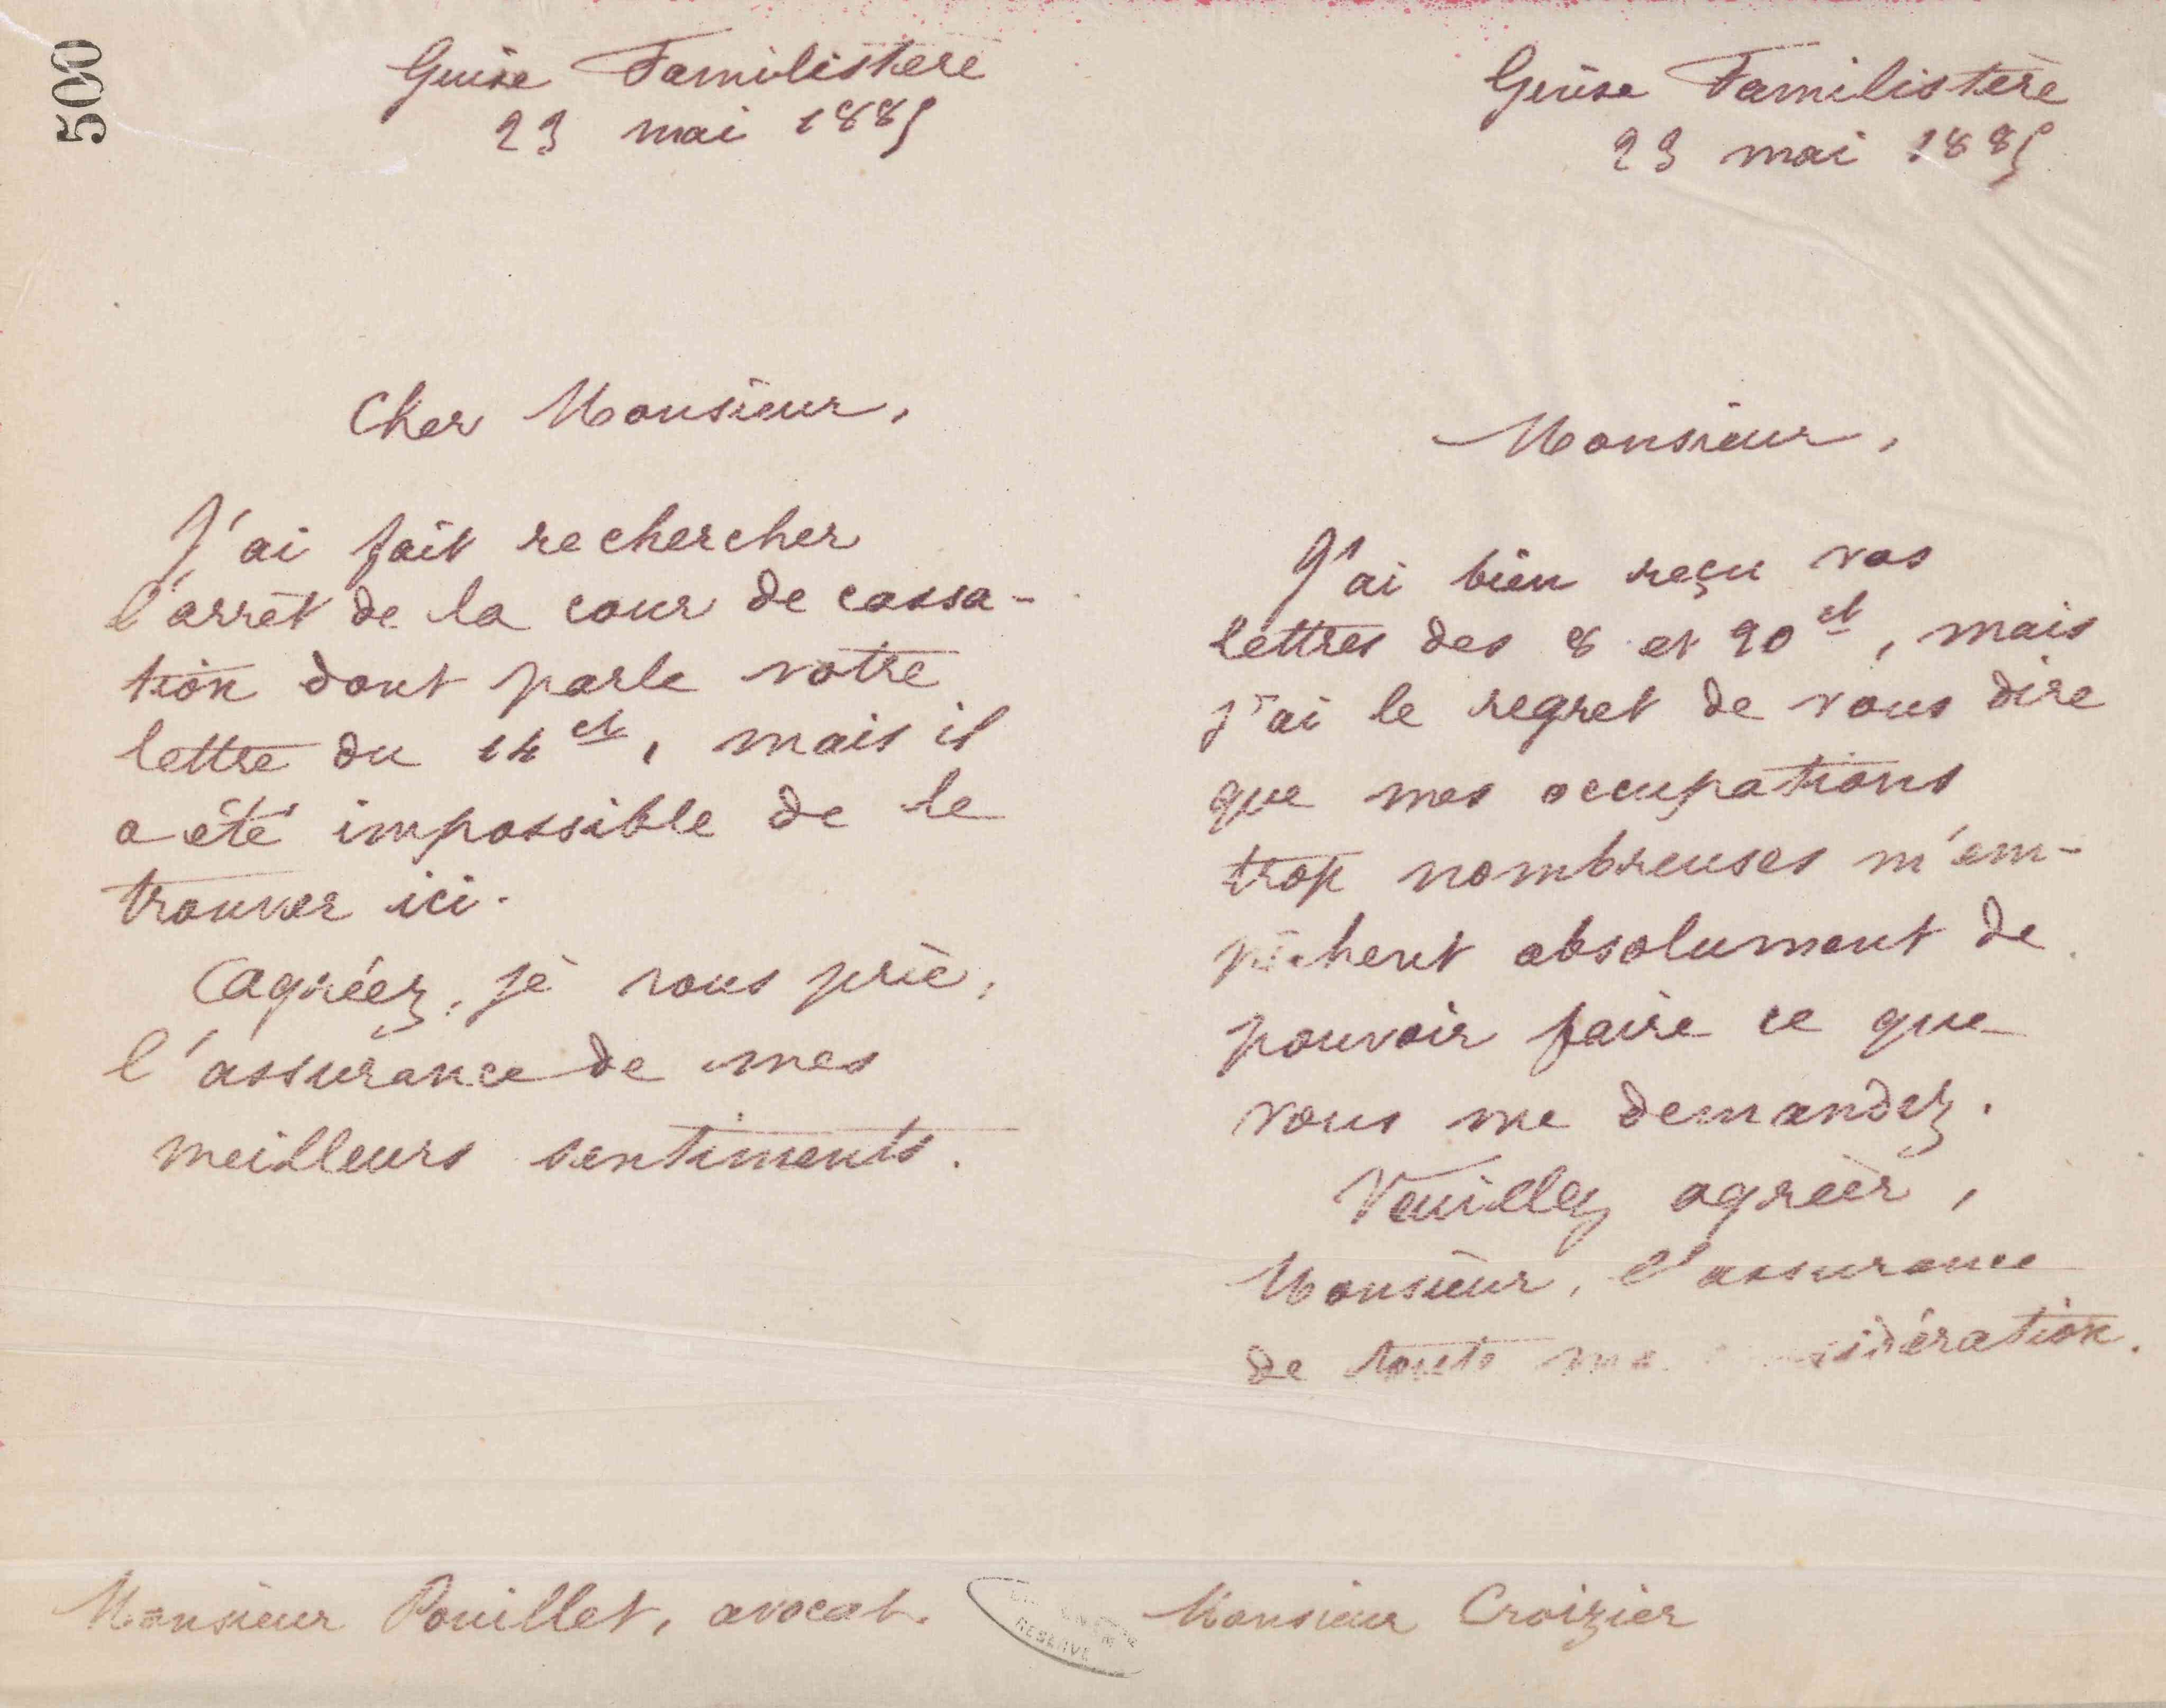 500
Guise Familistère
23 mai 1885
Cher Monsieur,
J'ai fait rechercher
l'arrêt de la cour de cassa-
tion dont parle votre
lettre du 14 ct, mais il
a été impossible de le
trouver ici.
Agréez, je vous prie,
l'assurance de mes
meilleurs sentiments.
Monsieur Pouillet, avocat.
Guise Familistère
23 mai 1885
Monsieur,
J'ai bien reçu vos
lettres des 8 et 20 ct, mais
j'ai le regret de vous dire
que mes occupations
trop nombreuses m'em-
pêchent absolument de
pouvoir faire ce que
vous me demandez.
Veuillez agréer,
Monsieur, l'assurance
de toute ma considération.
Monsieur Croizier
RESERVE